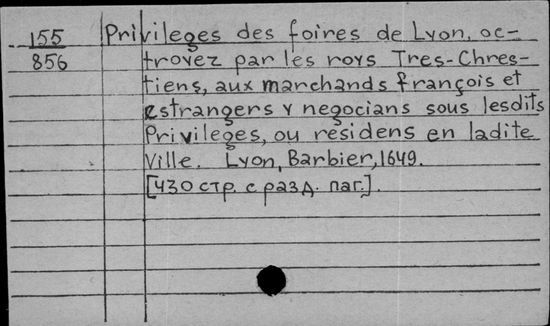 155
856
Privileges des foires de Lyon, oc-
troyez par les roys Tres-Chres-
tiens, aux marchands françois et
estrangers y negocians sous lesdits
Privileges, ou residens en ladite
Ville. Lyon, Barbier, 1649.
[430 стр. с разд. паг.].